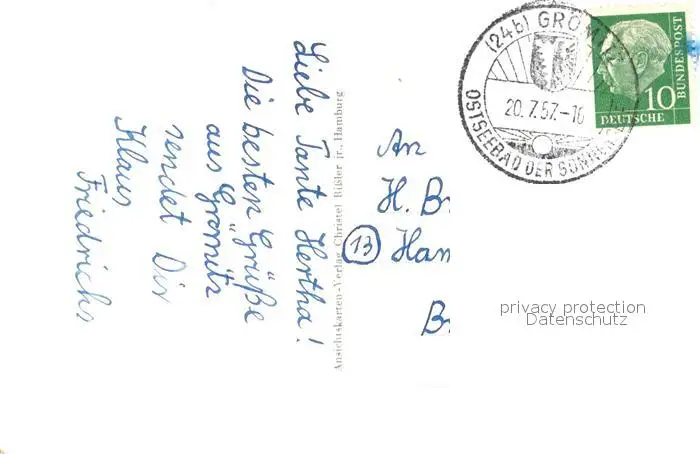 Liebe Tante Hertha!
Die besten Grüße
aus Grömitz
sendet Dir
Klaus
Friedrichs
Ansichtskarten-Verlag Christel Rißler jr., Hamburg
An
H. B
13 Ham
B
(24b) GRÖMITZ
20.7.57.-16
OSTSEEBAD DER SONNEN
10
DEUTSCHE
BUNDESPOST
privacy protection
Datenschutz